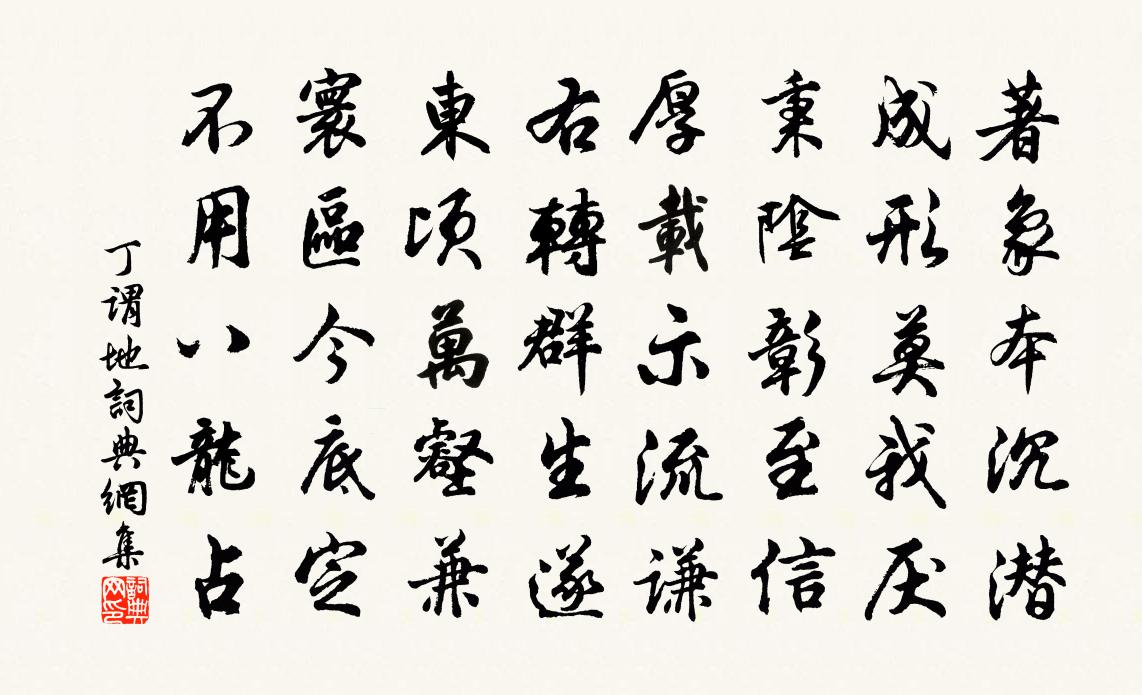 著象本沉潜
成形莫我厌
秉陰彰至信
厚載示流谦
右轉群生遂
東頃萬壑兼
寰區今底定
不用八龍占
丁谓地詞典網集
詞典网印